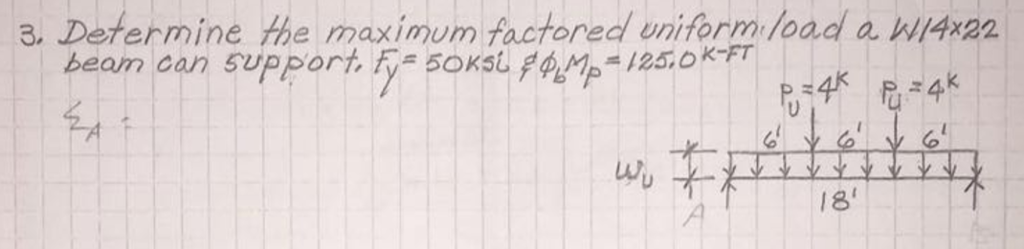 3. Determine the maximum factored uniform load a W14x22
beam can support. Fy = 50ksi & ϕbMp = 125.0 K-FT
Pu = 4K Pu = 4K
ΣA =
6' 6' 6'
Wu
18'
A